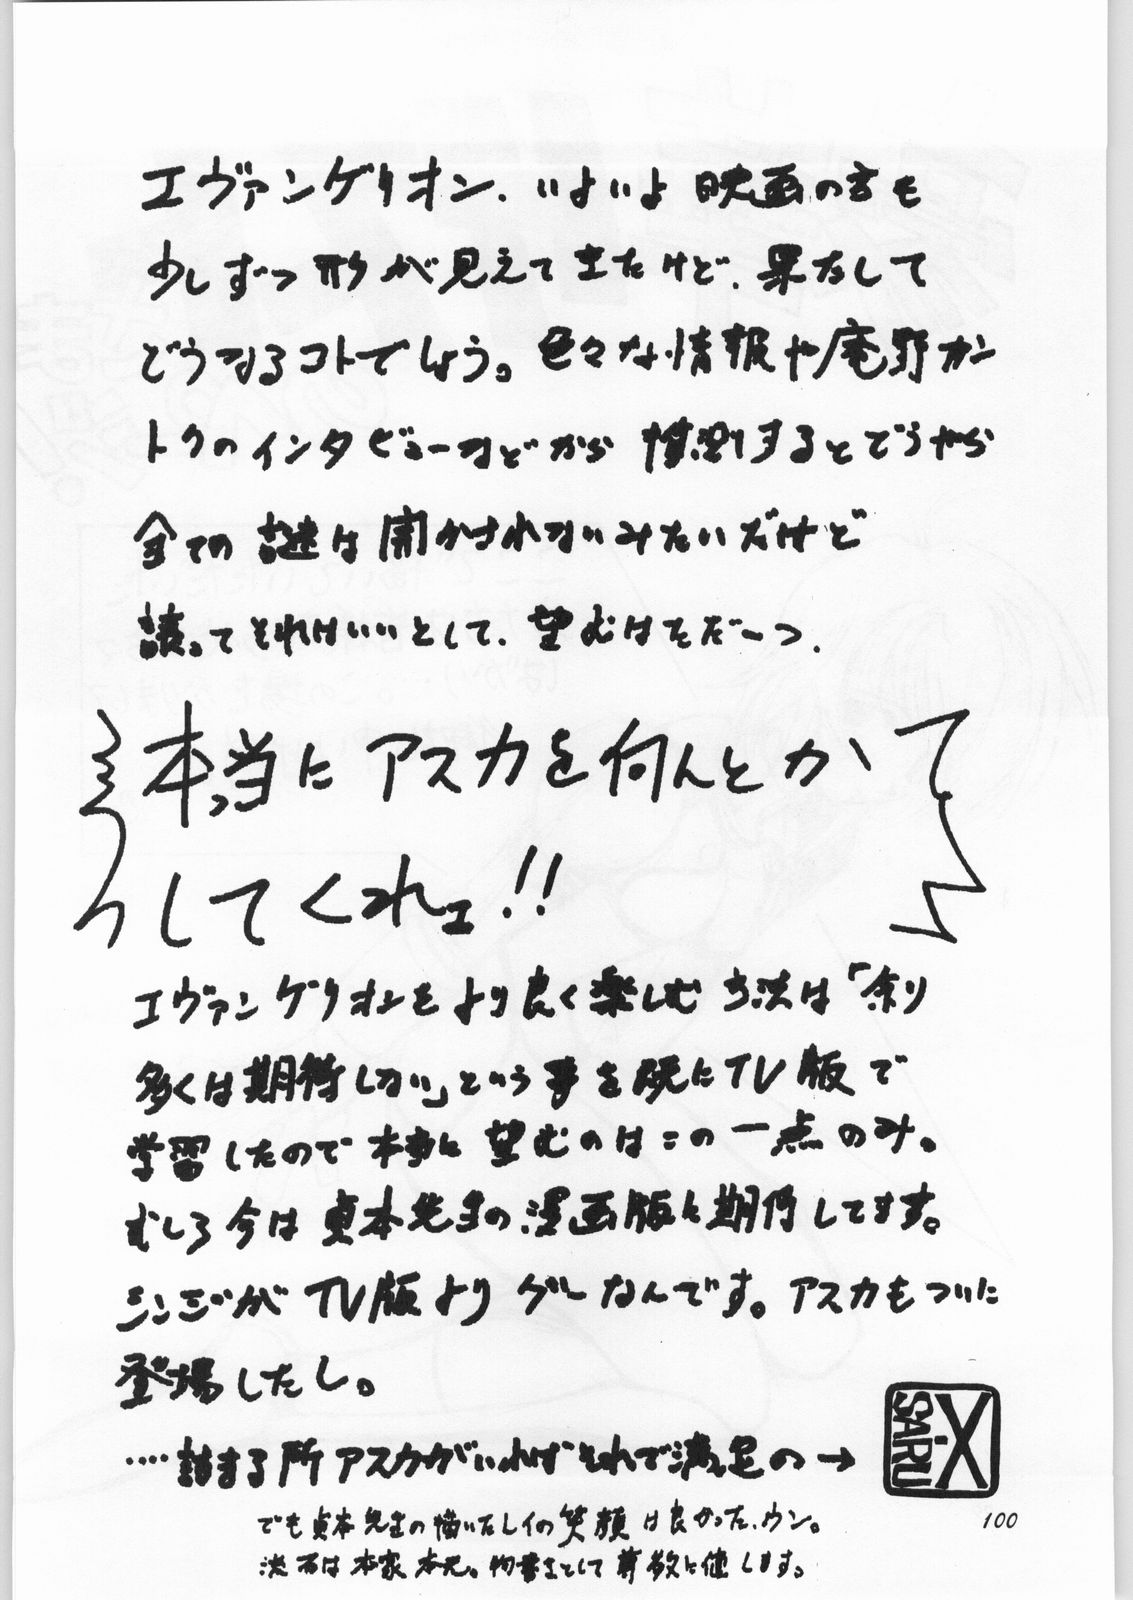 エヴァンゲリオン、いよいよ映画の方も
少しずつ形が見えてきたけど、果たして
どうなるコトでしょう。色々な情報や庵野カン
トクのインタビューなどから推測するとどうやら
全ての謎は開かされないみたいだけど
譲ってそれはいいとして、望むはただ一つ、
本っ当にアスカを何んとか
してくれェ!!
エヴァンゲリオンをより良く楽しむ方法は「余り
多くは期待しない」という事を既にTV版で
学習したので本当に望むのはこの一点のみ。
むしろ今は貞本先生の漫画版に期待してます。
シンジがTV版よりグーなんです。アスカもついに
登場したし。
‥‥詰まる所アスカがいればそれで満足の→
X・SARU
でも貞本先生の描いたレイの笑顔は良かった、ウン。
流石は本家本元。物書きとして尊敬に値します。
100